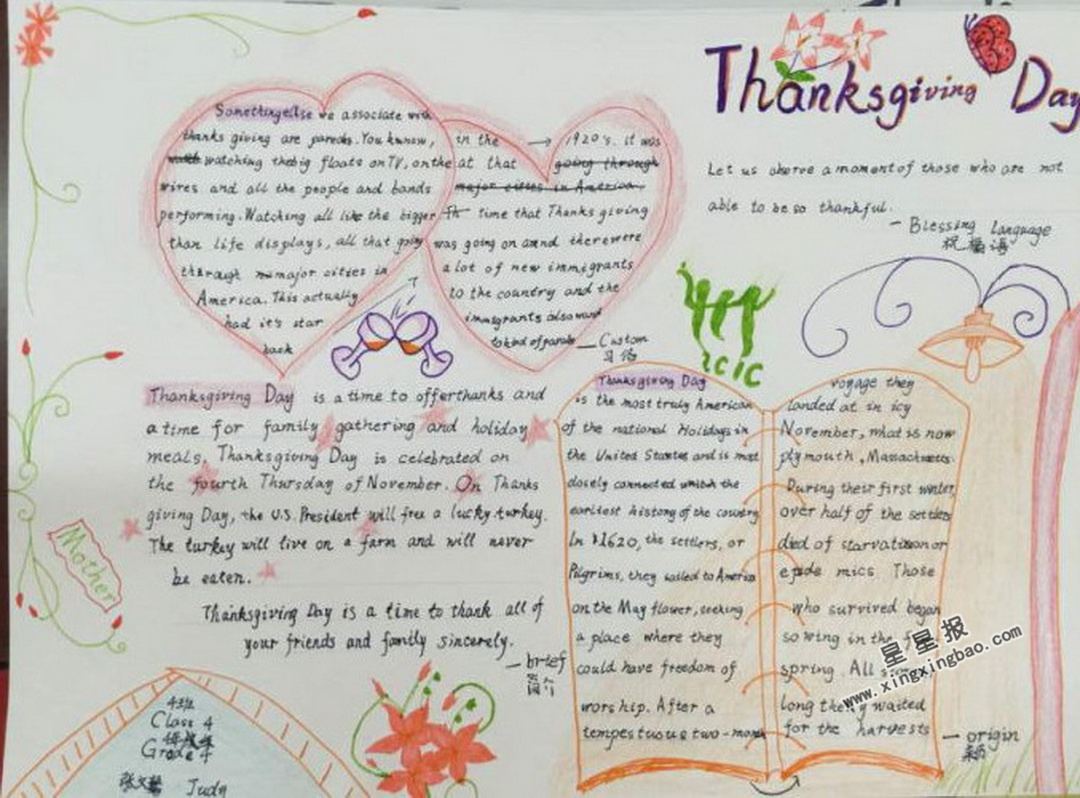 Thanksgiving Day
Let us oberve a moment of those who are not
able to be so thankful.
— Blessing language
祝福语
Somethingelse we associate with
thanks giving are parades. You knnow,
watching the big floats on TV, on the
wires and all the people and bands
performing. Watching all like the bigger
than life displays, all that going
through major cities in
America. This actually
had it's star
back
in the → 1920's. it was
at that going through
major cities in America.
time that Thanks giving
was going on and there were
a lot of new immigrants
to the country and the
immigrants also want
to kind of parade — Custom
习俗
Thanksgiving Day is a time to offerthanks and
a time for family gathering and holiday
meals. Thanksgiving Day is celebrated on
the fourth Thursday of November. On Thanks
giving Day, the U.S. President will free a lucky turkey.
The turkey will live on a farm and will never
be eaten.
Thanksgiving Day is a time to thank all of
your friends and family sincerely.
— brief
简介
Thanksgiving Day
is the most truly American
of the national Holidays in
the United Staetes and is most
closely connected which the
earliest history of the country
In 1620, the settlers, or
Pilgrims, they sailed to America
on the May flower, seeking
a place where they
could have freedom of
worship. After a
tempestuous two-month
voyage they
landed at in icy
November, what is now
plymouth, Massachusetts.
During their first winter,
over half of the settlers
died of starvation or
epide mics Those
who survived began
sowing in the
spring. All
long they waited
for the harvests
— origin
Mother
4班
Class 4
Grade 4
Judy
星星报
www.xingxingbao.com